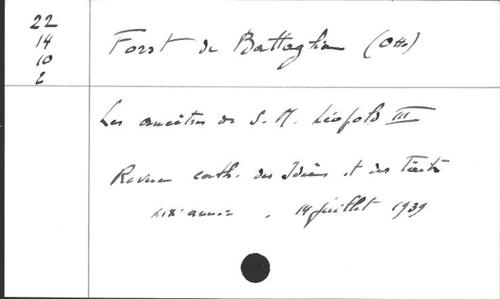 22
14
10
2
Forst de Battaglia (Otto)
Les ancêtres de S. M. Léopold III
Revue cath. des Idées et des Faits
XIXe année . 14 juillet 1939